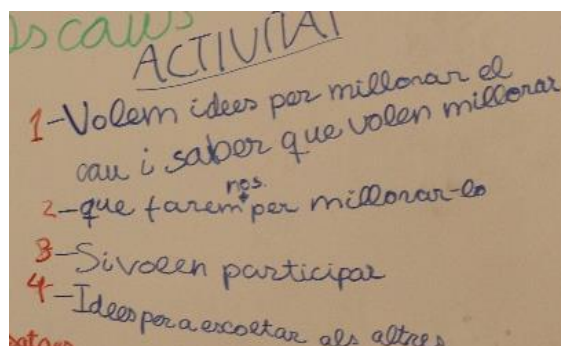 ACTIVITAT
1-Volem idees per millorar el
cau i saber que volen millorar
nos.
2-que farem per millorar-lo
3-Si volen participar
4-Idees per a escoltar als altres